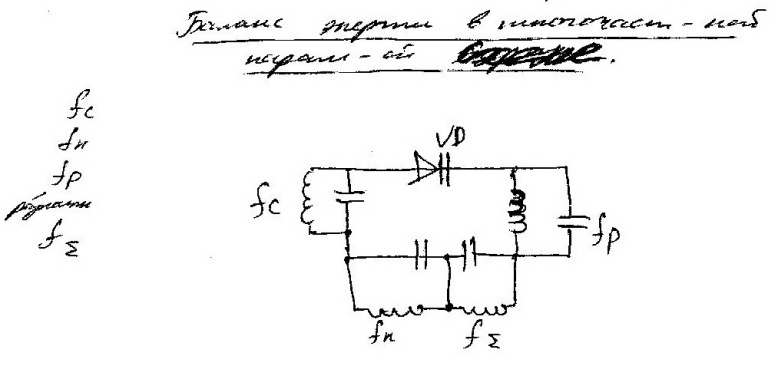 Баланс энергии в многочаст-ной
парам-ой схеме.
fс
fн
fр
fΣ
VD
fс
fр
fн
fΣ